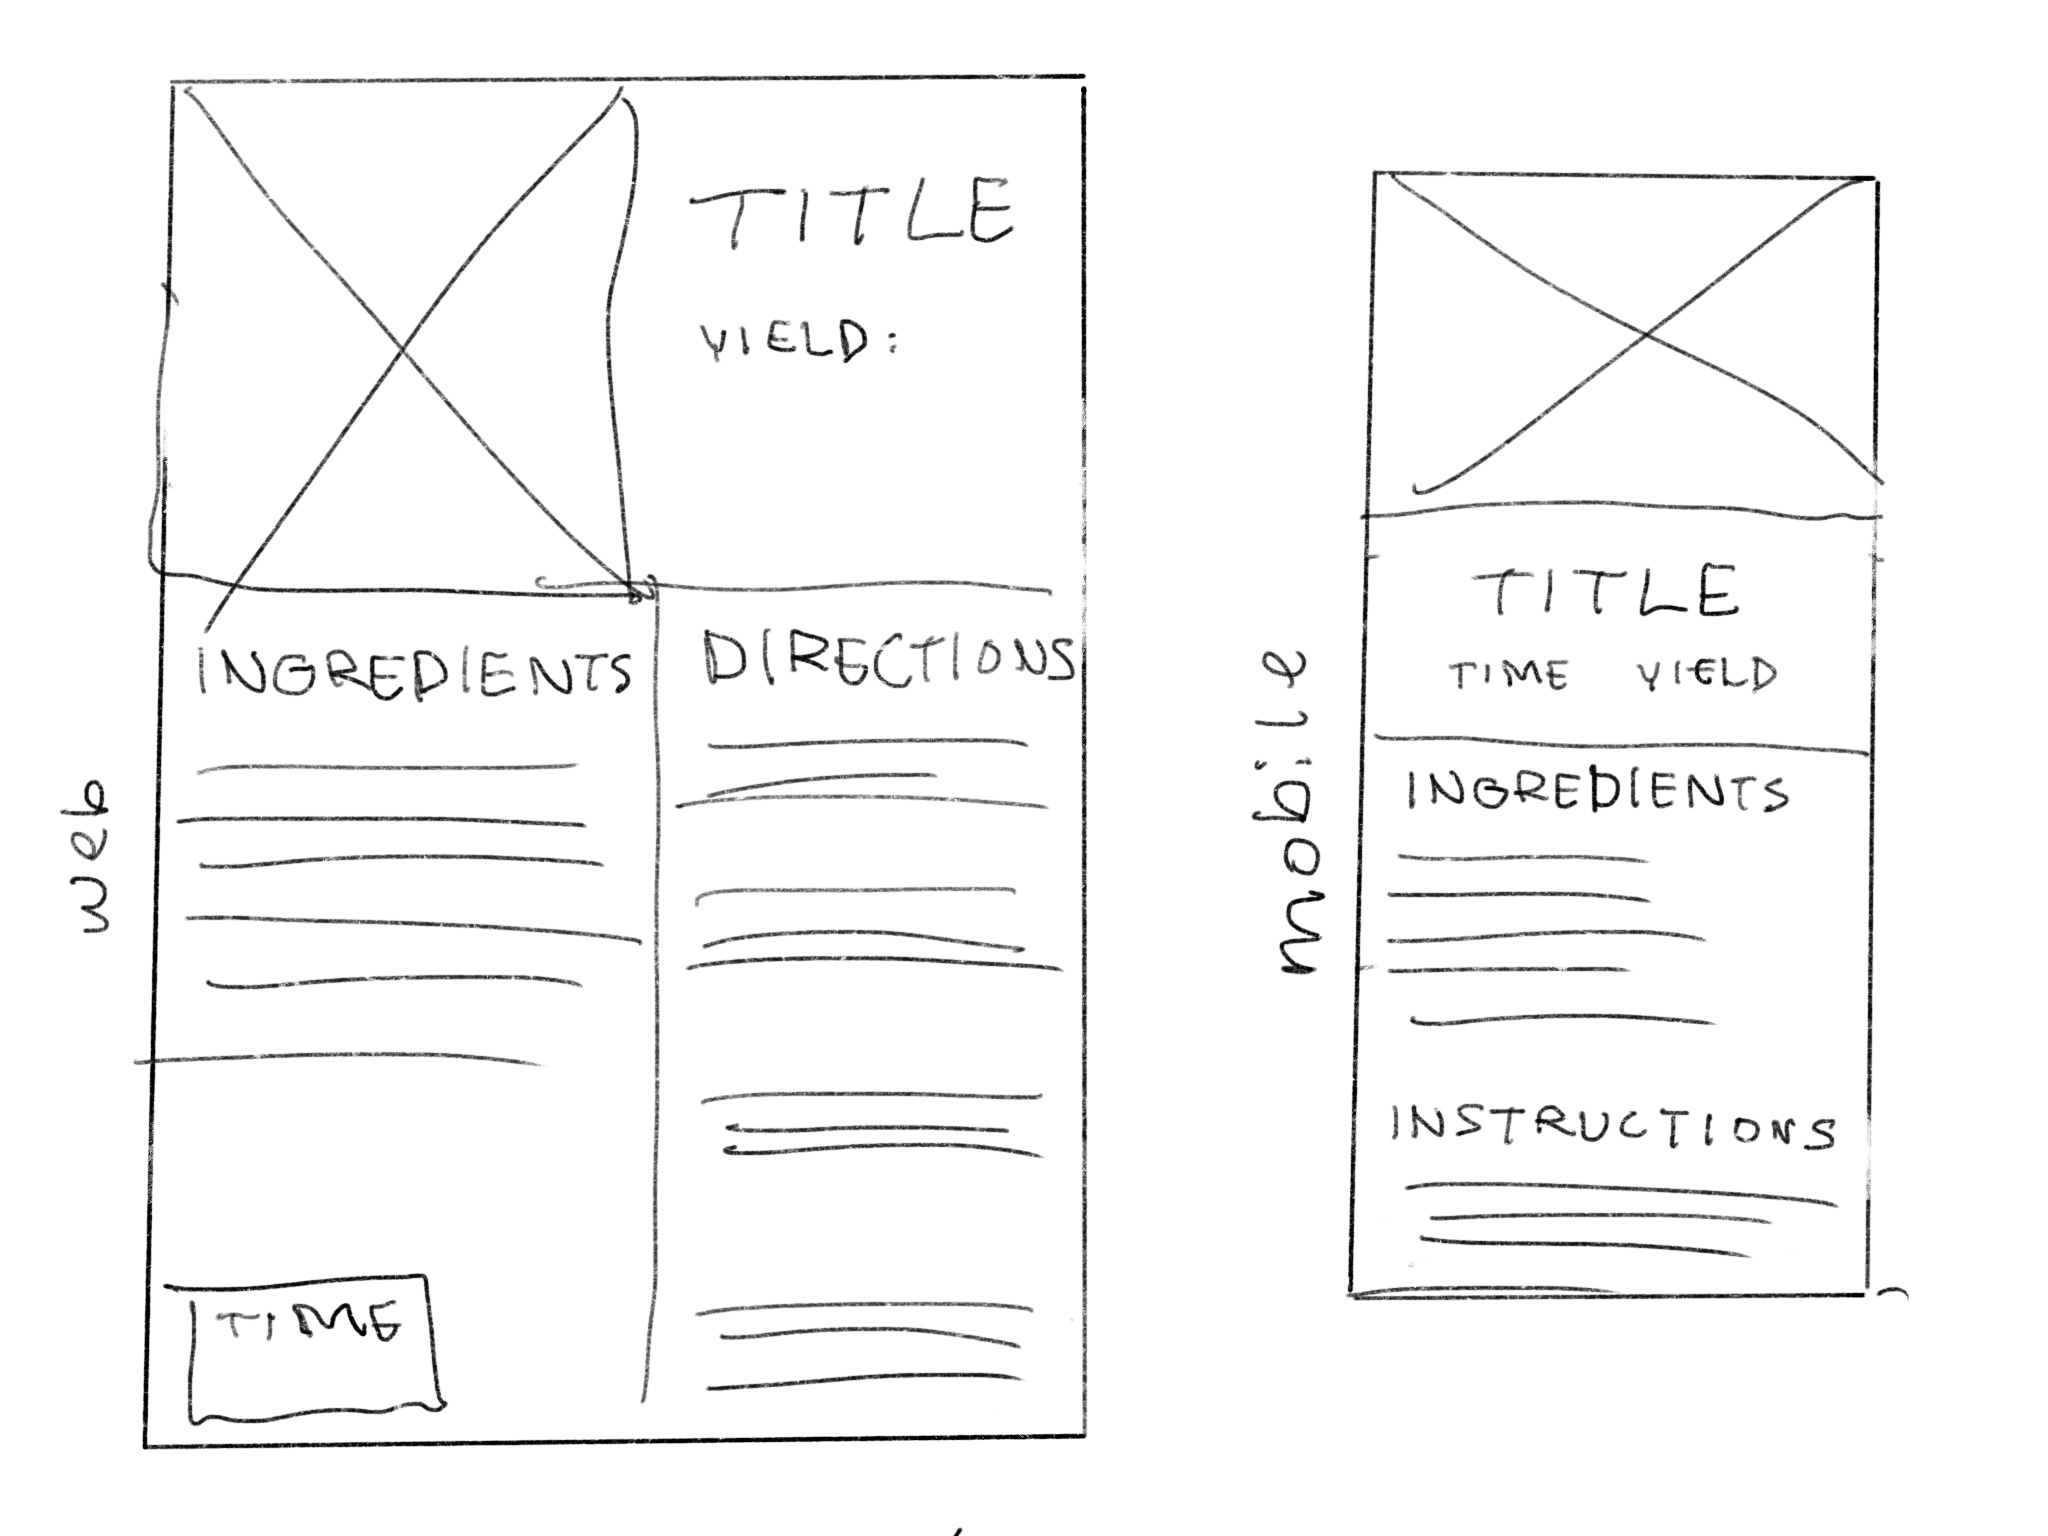 web
TITLE
YIELD:
INGREDIENTS
DIRECTIONS
TIME
mobile
TITLE
TIME YIELD
INGREDIENTS
INSTRUCTIONS